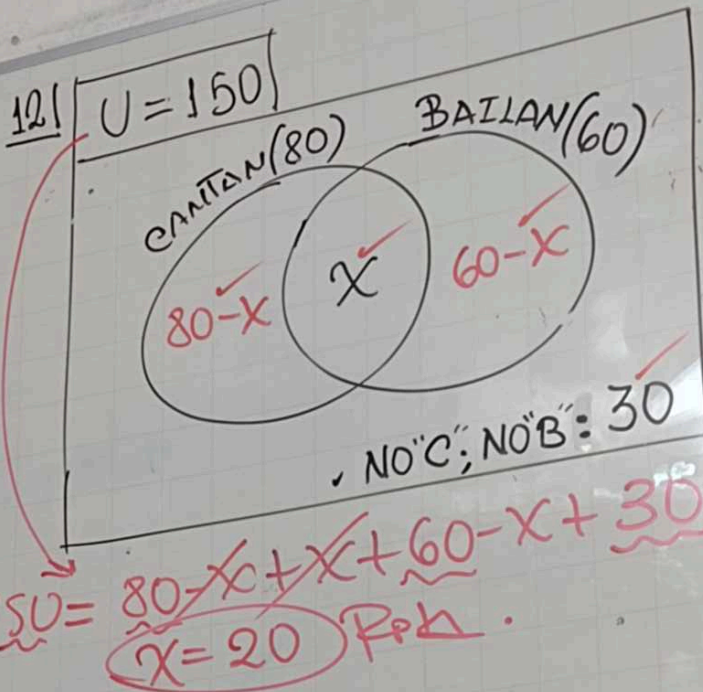 121 U = 150
CANTAN (80) BAILAN (60)
80-X X 60-X
NO "C"; NO "B": 30
50 = 80-X+X+60-X+30
X = 20 Rpta.